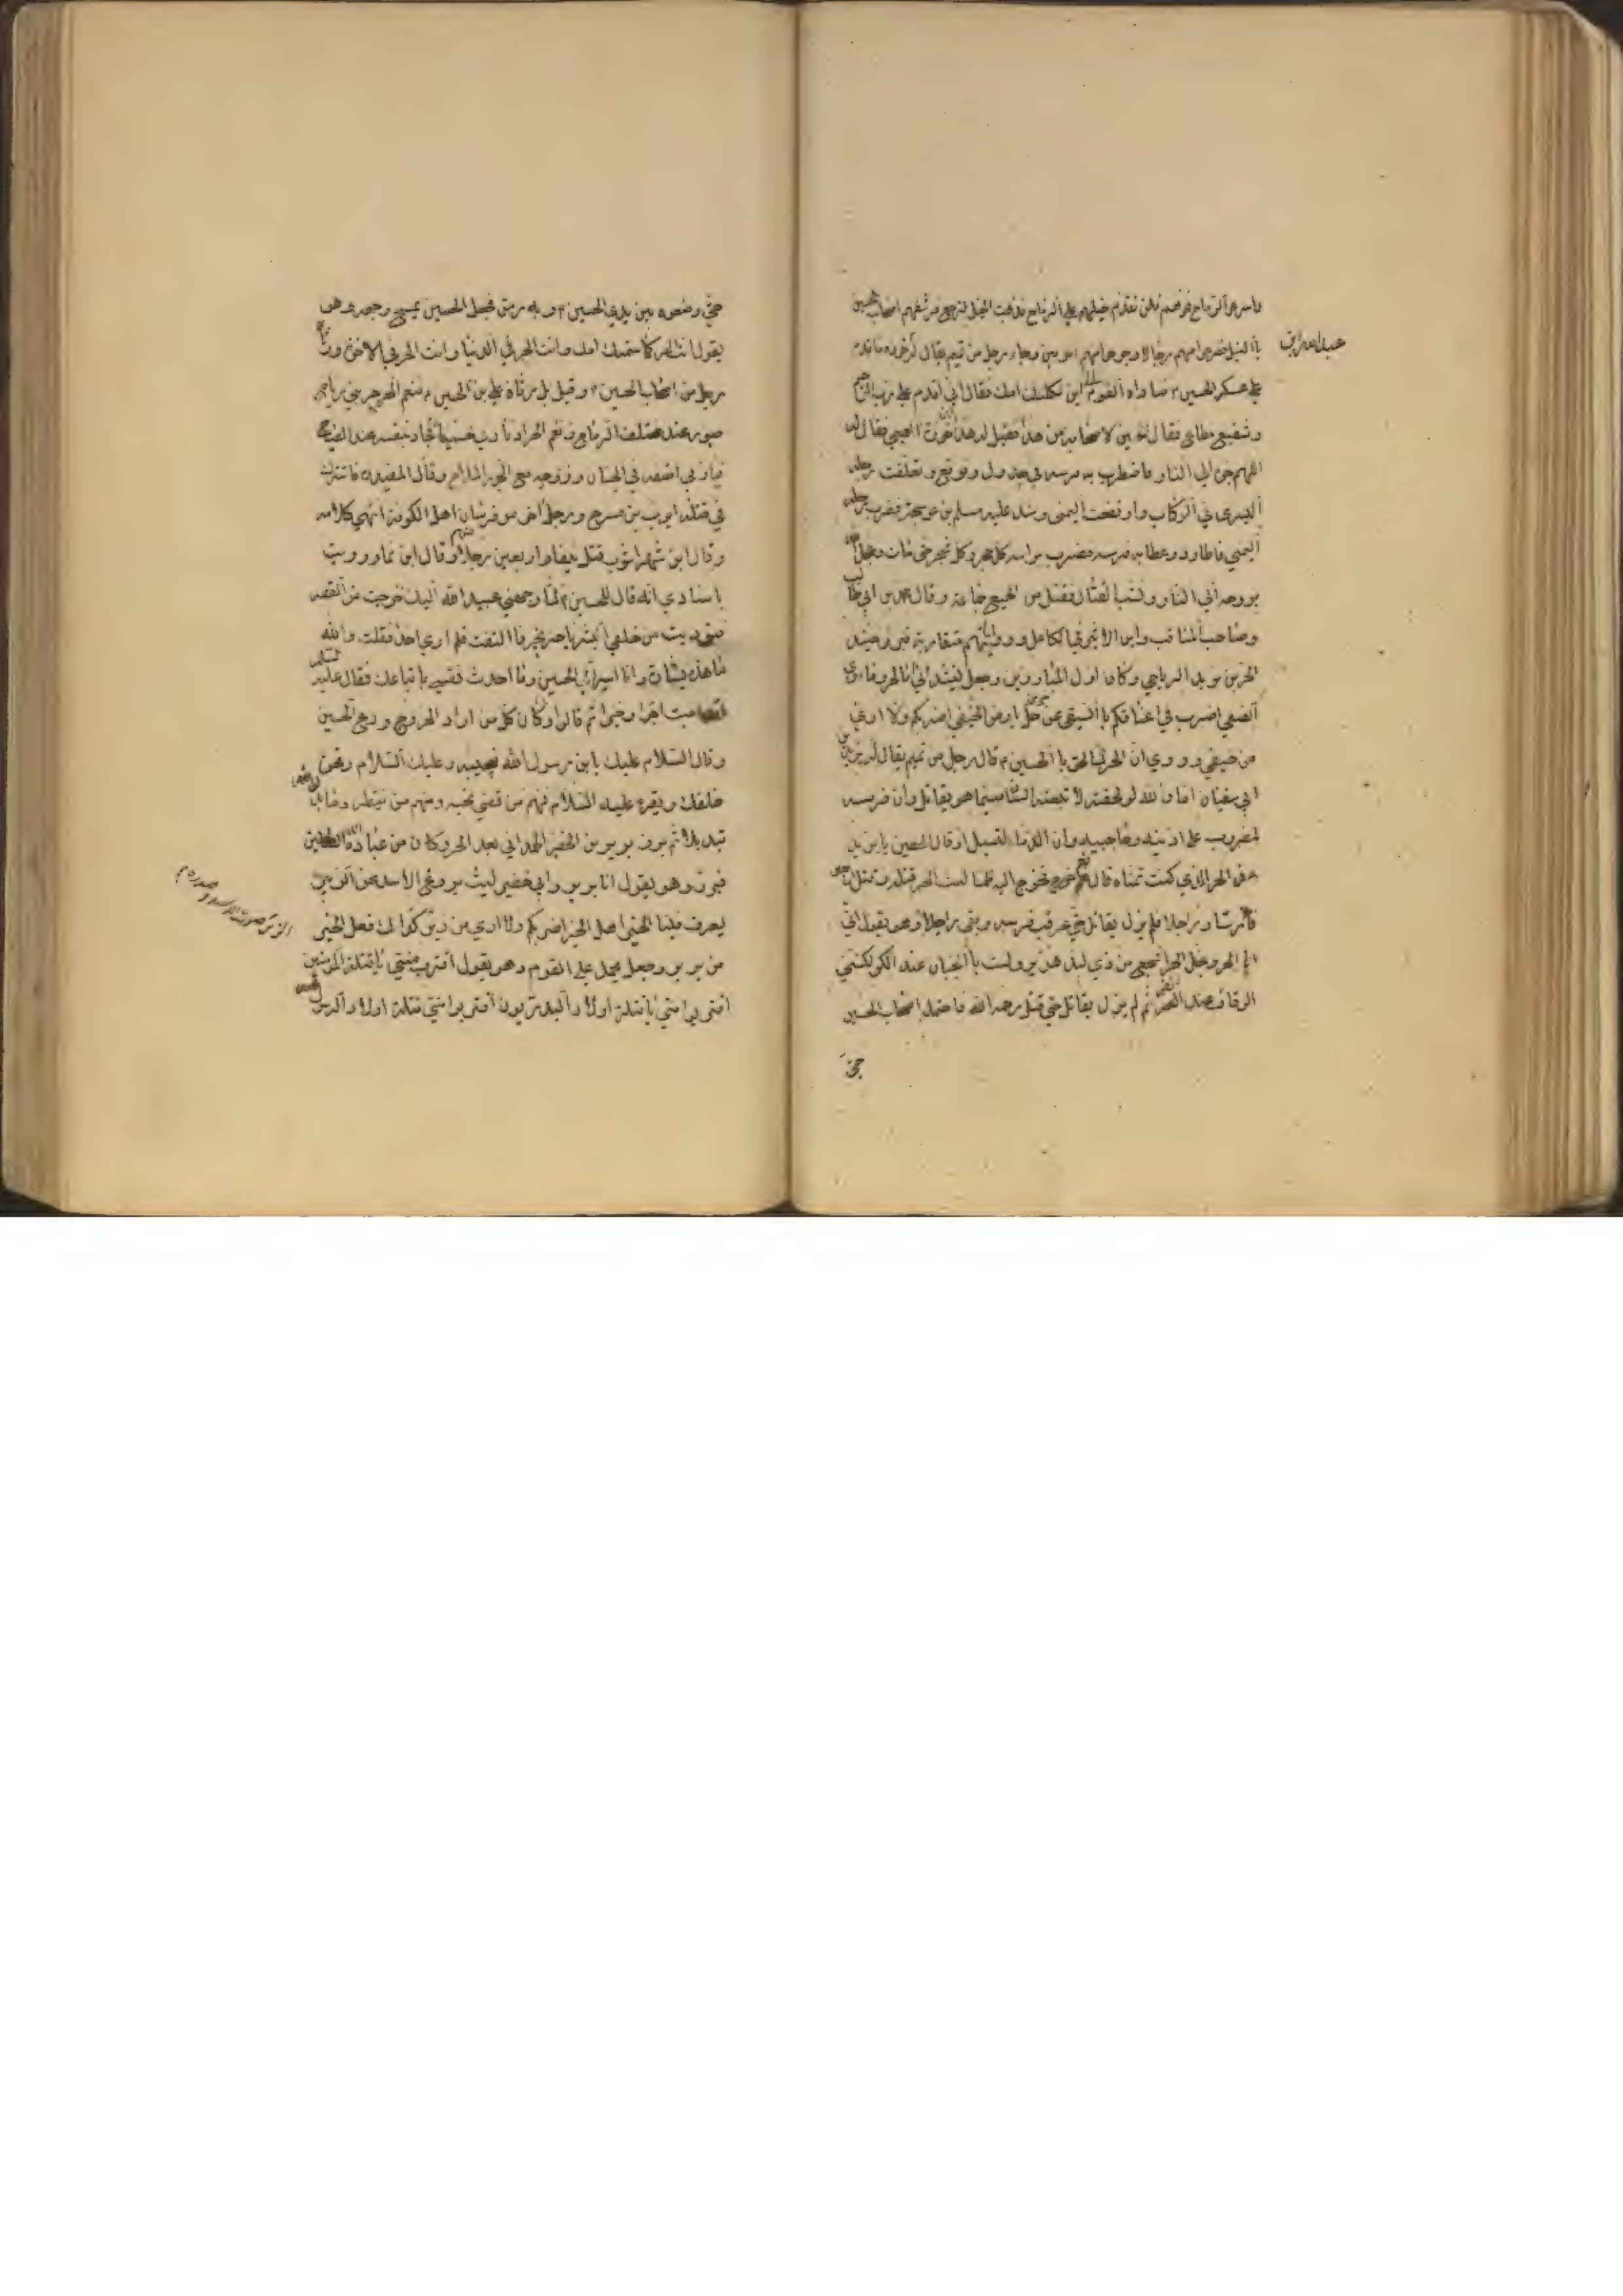 واشرعوا الرماح نحوهم فلن تقدم خيلهم علي الرماح فذهبت الخيل لترجع فرشقهم اصحاب الحسين
بالنبل فصرعوا منهم رجالا وجرحوا منهم اخرين وجاء رجل من تميم يقال له عبد الله بن خوزة فاقدم
علي عسكر الحسين فناداه القوم الي اين ثكلتك امك فقال اني اقدم علي رب رحيم
وشفيع مطاع فقال الحسين لاصحابه من هذا فقيل له هذا ابن خوزة التميمي فقال
اللهم جره الي النار فاضطرب به فرسه في جدول فوقع وتعلقت رجله
اليسرى في الركاب وارتفعت اليمنى وشد عليه مسلم بن عوسجة فضرب رجله
اليمني فاطارت وعدا به فرسه فضرب براسه كل حجر وكل شجر حتى مات وعجل الله
بروحه الي النار ونشب القتال فقتل من الجميع جماعة وقال محمد بن ابي طالب
وصاحب المناقب وابن الاثير في الكامل ورواياتهم متقاربة
الحر بن يزيد الرياحي وكان اول المبارزين وجعل ينشد اني انا الحر وماوى
الضيف اضرب في اعناقكم بالسيف عن خير من حل بارض الخيف اضربكم ولا ارى
من حيف وروي ان الحر لما لحق بالحسين قال رجل من تميم يقال له يزيد بن
ابي سفيان اما والله لو لحقته لاتبعته السنان فبينما هو يقاتل وان فرسه
لمضروب على اذنيه وحاجبيه وان الدماء لتسيل اذ قال الحصين يا يزيد
هذا الحر الذي كنت تتمناه قال نعم فخرج اليه فما لبث الحر ان قتله وقتل اربعين
فارسا وراجلا فلم يزل يقاتل حتى عرقب فرسه وبقى راجلا وهو يقول اني
انا الحر ونجل الحر اشجع من ذي لبد هزبر ولست بالجبان عند الكر لكنني
الوقاف عند الفر ثم لم يزل يقاتل حتى قتل رحمه الله فاحتمله اصحاب الحسين
حتى
حتى وضعوه بين يدي الحسين وبه رمق فجعل الحسين يمسح وجهه وهو
يقول انت الحر كما سمتك امك وانت الحر في الدنيا وانت الحر في الاخرة ورثاه
رجل من اصحاب الحسين وقيل بل رثاه علي بن الحسين لنعم الحر حر بني رياح
صبور عند مختلف الرماح ونعم الحر اذ نادى حسينا فجاد بنفسه عند الصباح
فيا ربي اضفه في الجنان وزوجه مع الحور الملاح وقال المفيد فاشترك
في قتله ايوب بن مسرح ورجل اخر من فرسان اهل الكوفة انتهى كلامه
وقال ابن شهراشوب قتل نيفا واربعين رجلا منهم وقال ابن نما ورويت
باسنادي انه قال للحسين لما وجهني عبيد الله اليك خرجت من القصر
فنوديت من خلفي ابشر يا حر بخير فالتفت فلم ارى احدا فقلت والله
ما هذه بشارة وانا اسير الي الحسين وما احدث نفسي باتباعك فقال عليه السلام
لقد اصبت اجرا وخيرا ثم قالوا وكان كل من اراد الخروج ودع الحسين
وقال السلام عليك يا ابن رسول الله فيجيبه وعليك السلام ونحن
خلفك ويقرء عليه السلام فمنهم من قضى نحبه ومنهم من ينتظر وما بدلوا
تبديلا ثم برز برير بن الخضير الهمداني بعد الحر وكان من عباد الله الصالحين
فبرز وهو يقول انا برير وابي خضير ليث يروع الاسد عن الزئير
يعرف فينا الخير اهل الخير اضربكم ولا ارى من ضير كذاك فعل الخير
من برير وجعل يحمل على القوم وهو يقول اقتربوا مني يا قتلة المؤمنين
اقتربوا مني يا قتلة اولاد البدريين اقتربوا مني يا قتلة اولاد
الزئير صوت الاسد في صدره